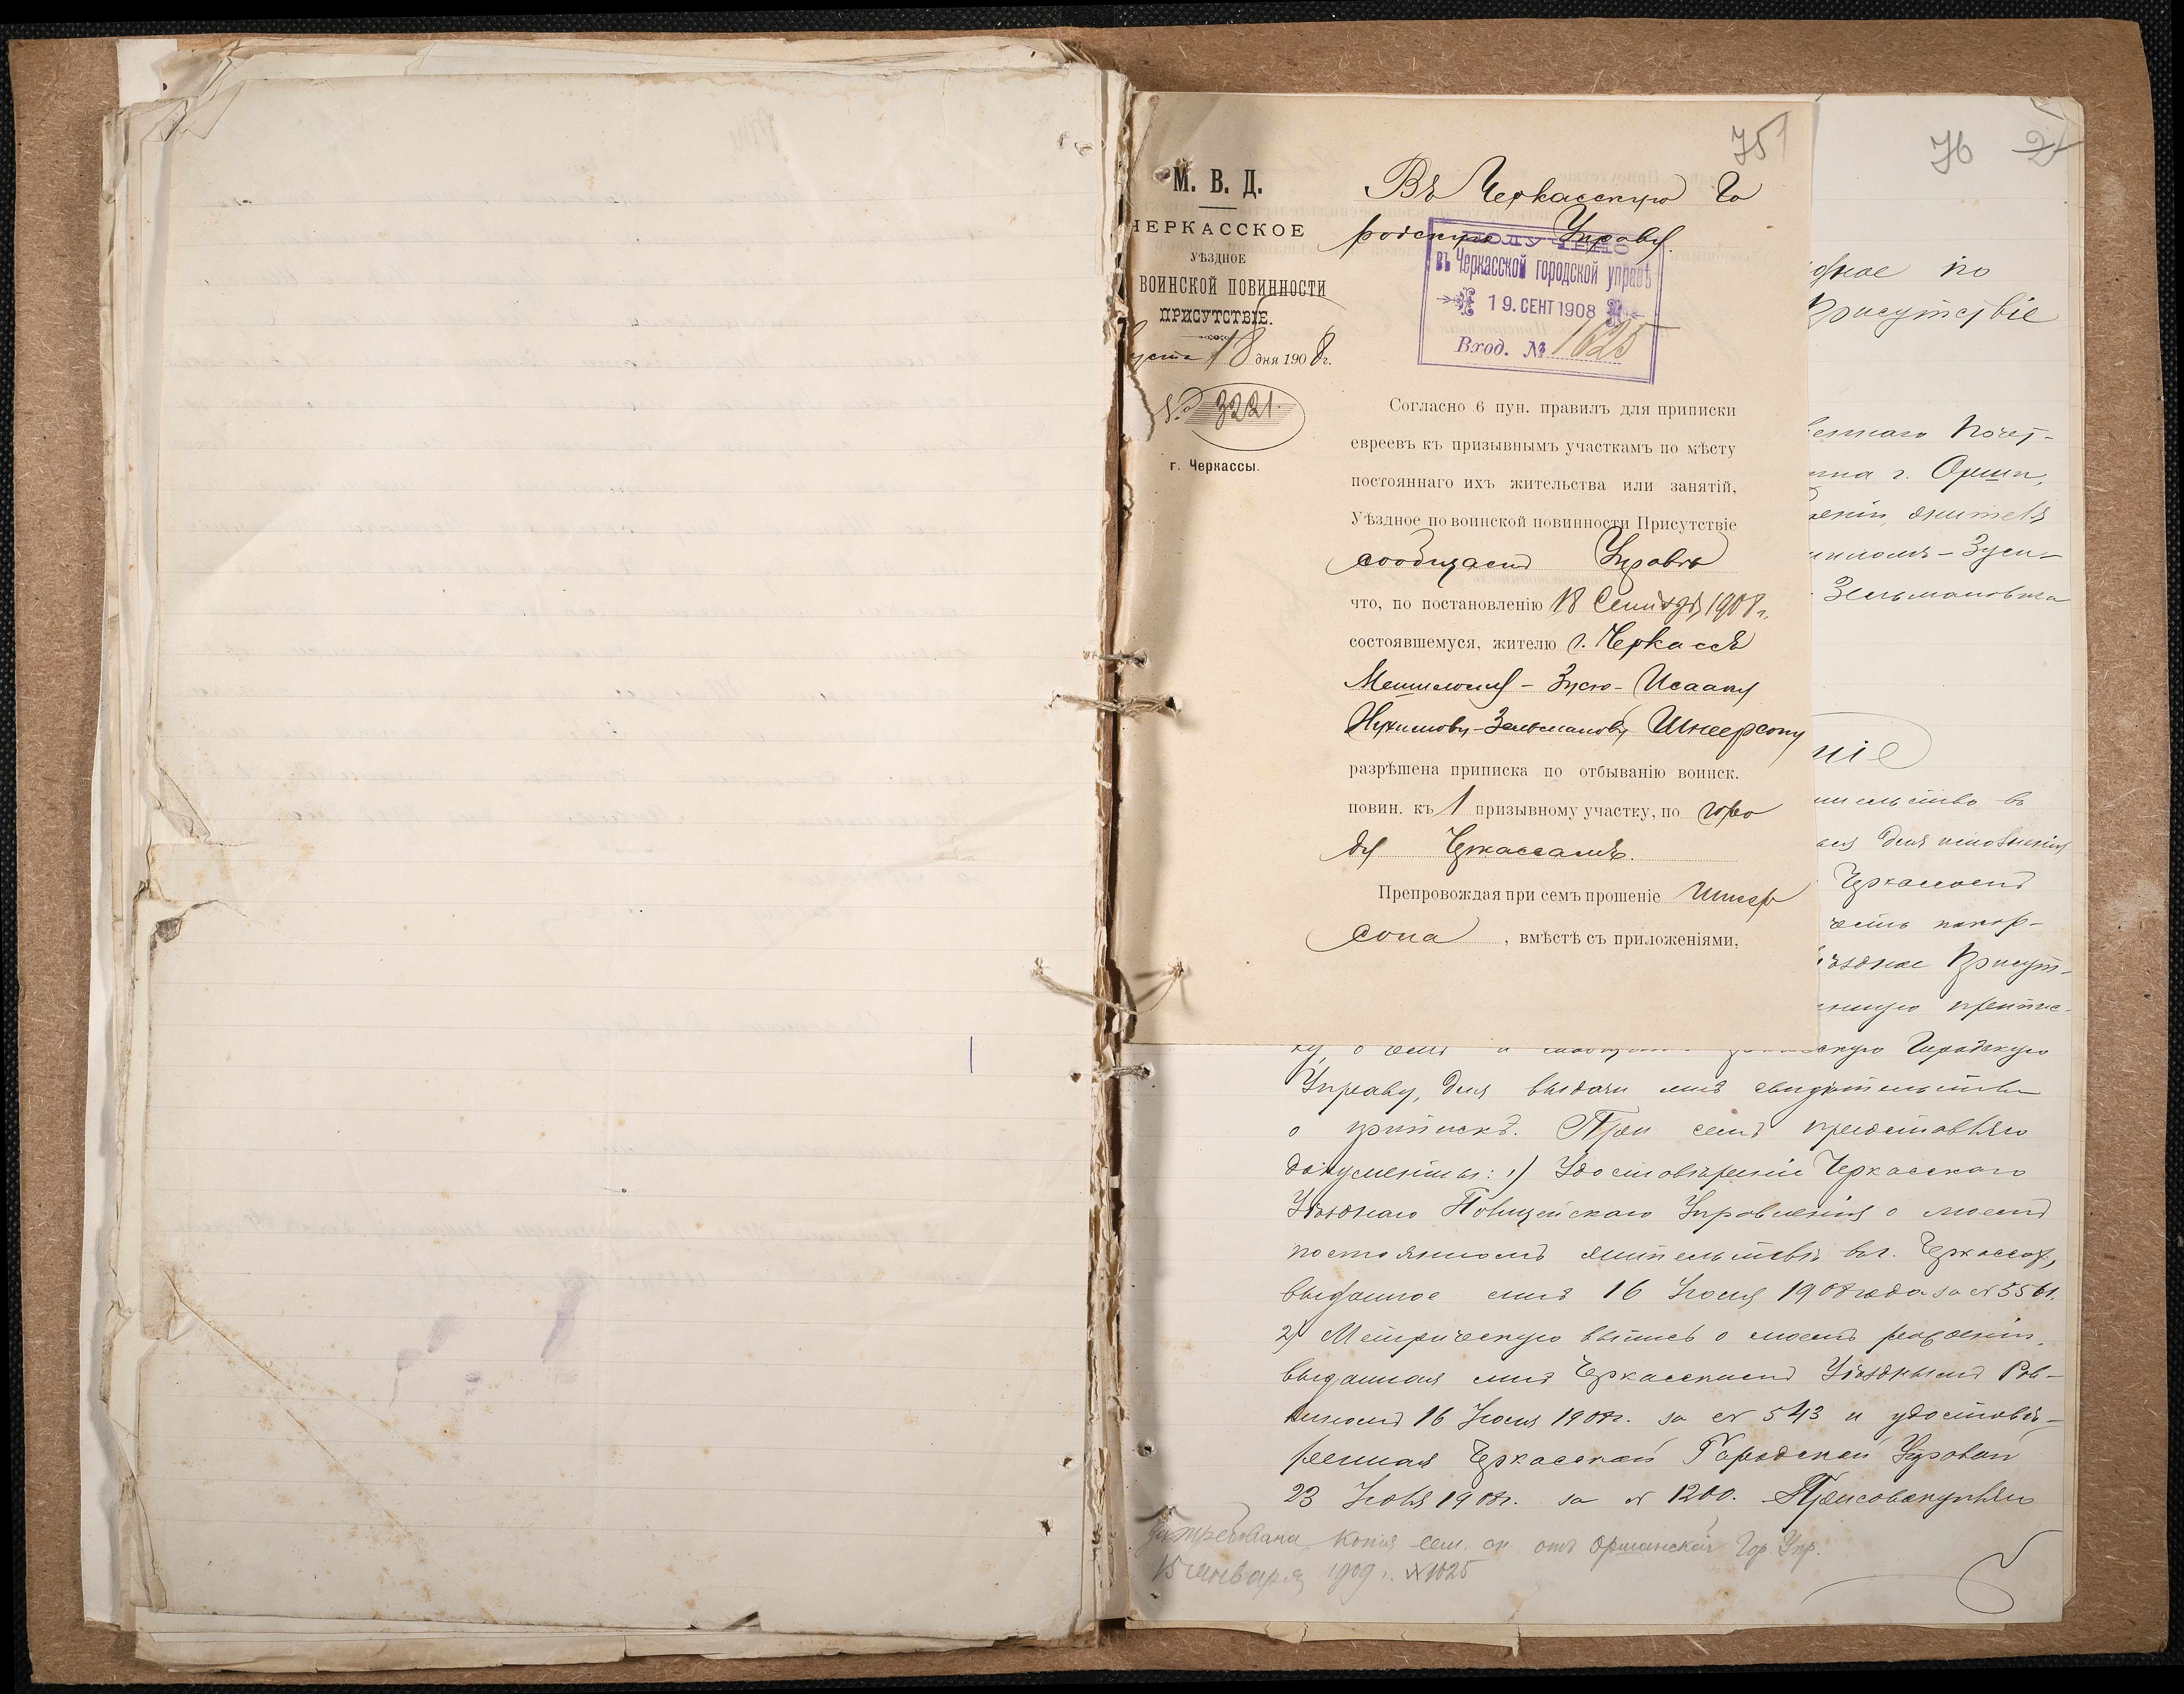 75
М. В. Д.
ЧЕРКАССКОЕ
УѢЗДНОЕ
ВОИНСКОЙ ПОВИННОСТИ
ПРИСУТСТВІЕ.
18 дня 1908 г.
№ 3221.
г. Черкассы.
Въ Черкасскую Го
родскую Управу.
ПОЛУЧЕНО
въ Черкасской городской управѣ
19. СЕНТ 1908
Вход. № 1625
Согласно 6 пун. правилъ для приписки
евреевъ къ призывнымъ участкамъ по мѣсту
постояннаго ихъ жительства или занятій,
Уѣздное по воинской повинности Присутствіе
сообщаетъ Управѣ
что, по постановленію 18 Сентября 1908 г.
состоявшемуся, жителю г. Черкассъ
Зусю-Исааку
Нухимову-Зельманову Шнеерсону
разрѣшена приписка по отбыванію воинск.
повин. къ 1 призывному участку, по горо
ду Черкассамъ.
Препровождая при семъ прошеніе Шнеер
сона, вмѣстѣ съ приложеніями,
76 2
по
Присутствіе
Почет-
г. Орши,
жителя
Зуси-
Зельмановича
ніе
въ
для исполненія
Черкассомъ
честь покор-
Присут-
припис-
ку, о чемъ и Городскую
Управу, для выдачи мнѣ свидѣтельства
о припискѣ. При семъ представляю
документы: 1) Удостовѣреніе Черкасскаго
Уѣзднаго Полицейскаго Управленія о моемъ
постоянномъ жительствѣ въ г. Черкассахъ,
выданное мнѣ 16 Іюля 1908 года за № 5561.
2) Метрическую выпись о моемъ рожденіи,
выданная мнѣ Черкасскимъ Уѣзднымъ Рав-
виномъ 16 Іюля 1908 г. за № 543 и удостовѣ-
ренная Черкасской Городской Управой
23 Іюля 1908 г. за № 1200. Присовокупляю
Затребована копія сем. сп. отъ Оршанской Гор. Упр.
15 января 1909 г. № 1025